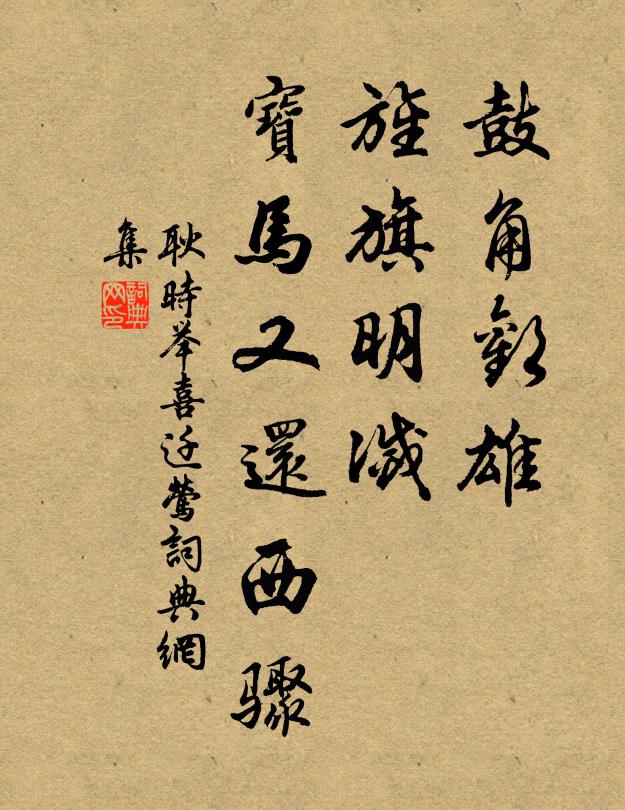 鼓角歡雄
旌旗明滅
寶馬又還西驟
耿時举喜迁鶯詞典網
集
詞典网印